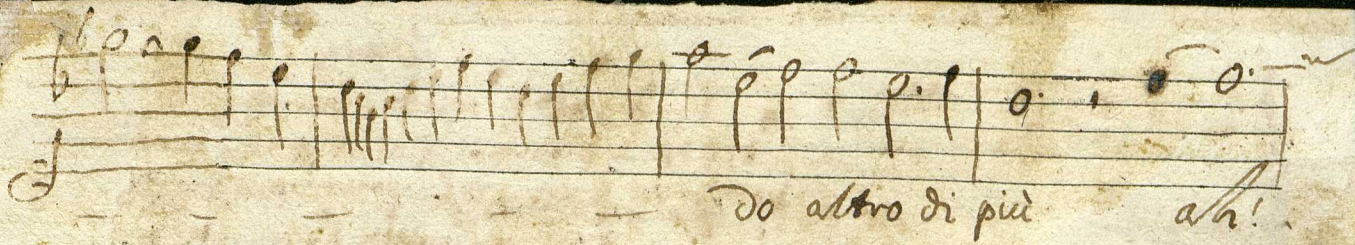 – – – – – do altro di più ah!